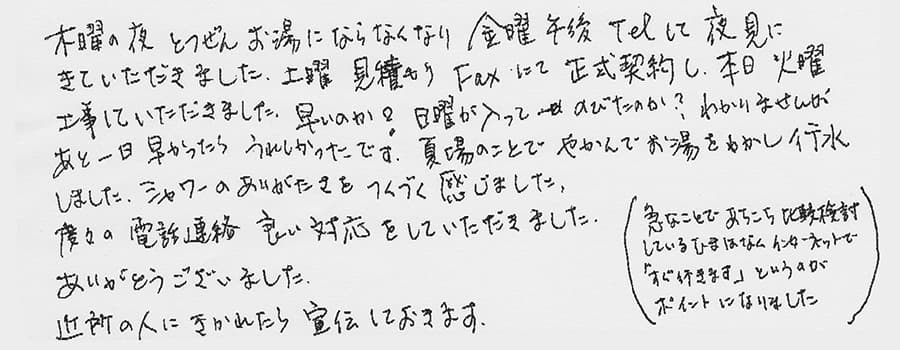 木曜の夜 とつぜん お湯にならなくなり 金曜 午後 Telして 夜見に
きていただきました。土曜 見積もり Faxにて 正式契約し、本日 火曜
工事していただきました。早いのか? 日曜が入って のびたのか? わかりませんが
あと一日 早かったら うれしかったです。夏場のことで やかんでお湯をわかし 行水
しました。シャワーのありがたさを つくづく 感じました。
度々の 電話連絡 良い 対応をしていただきました。
ありがとうございました。
近所の人に きかれたら 宣伝しておきます。
(急なことで あちこち 比較検討
しているひまはなく インターネットで
「すぐ行きます」というのが
ポイントになりました)